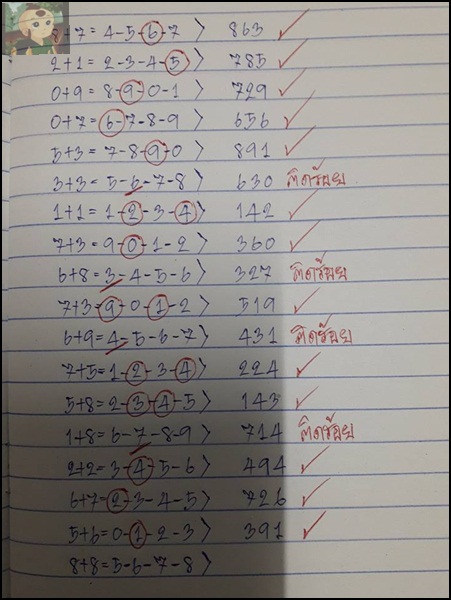 8+7 = 4-5-6-7 > 863 ✓
2+1 = 2-3-4-5 > 785 ✓
0+9 = 8-9-0-1 > 729 ✓
0+7 = 6-7-8-9 > 656 ✓
5+3 = 7-8-9-0 > 891 ✓
3+3 = 5-6-7-8 > 630 ติดร้อย
1+1 = 1-2-3-4 > 142 ✓
7+3 = 9-0-1-2 > 360 ✓
6+8 = 3-4-5-6 > 327 ติดร้อย
7+3 = 9-0-1-2 > 519 ✓
6+9 = 4-5-6-7 > 431 ติดร้อย
7+5 = 1-2-3-4 > 224 ✓
5+8 = 2-3-4-5 > 143 ✓
1+8 = 6-7-8-9 > 714 ติดร้อย
2+2 = 3-4-5-6 > 494 ✓
6+7 = 2-3-4-5 > 726 ✓
5+6 = 0-1-2-3 > 391 ✓
8+8 = 5-6-7-8 >